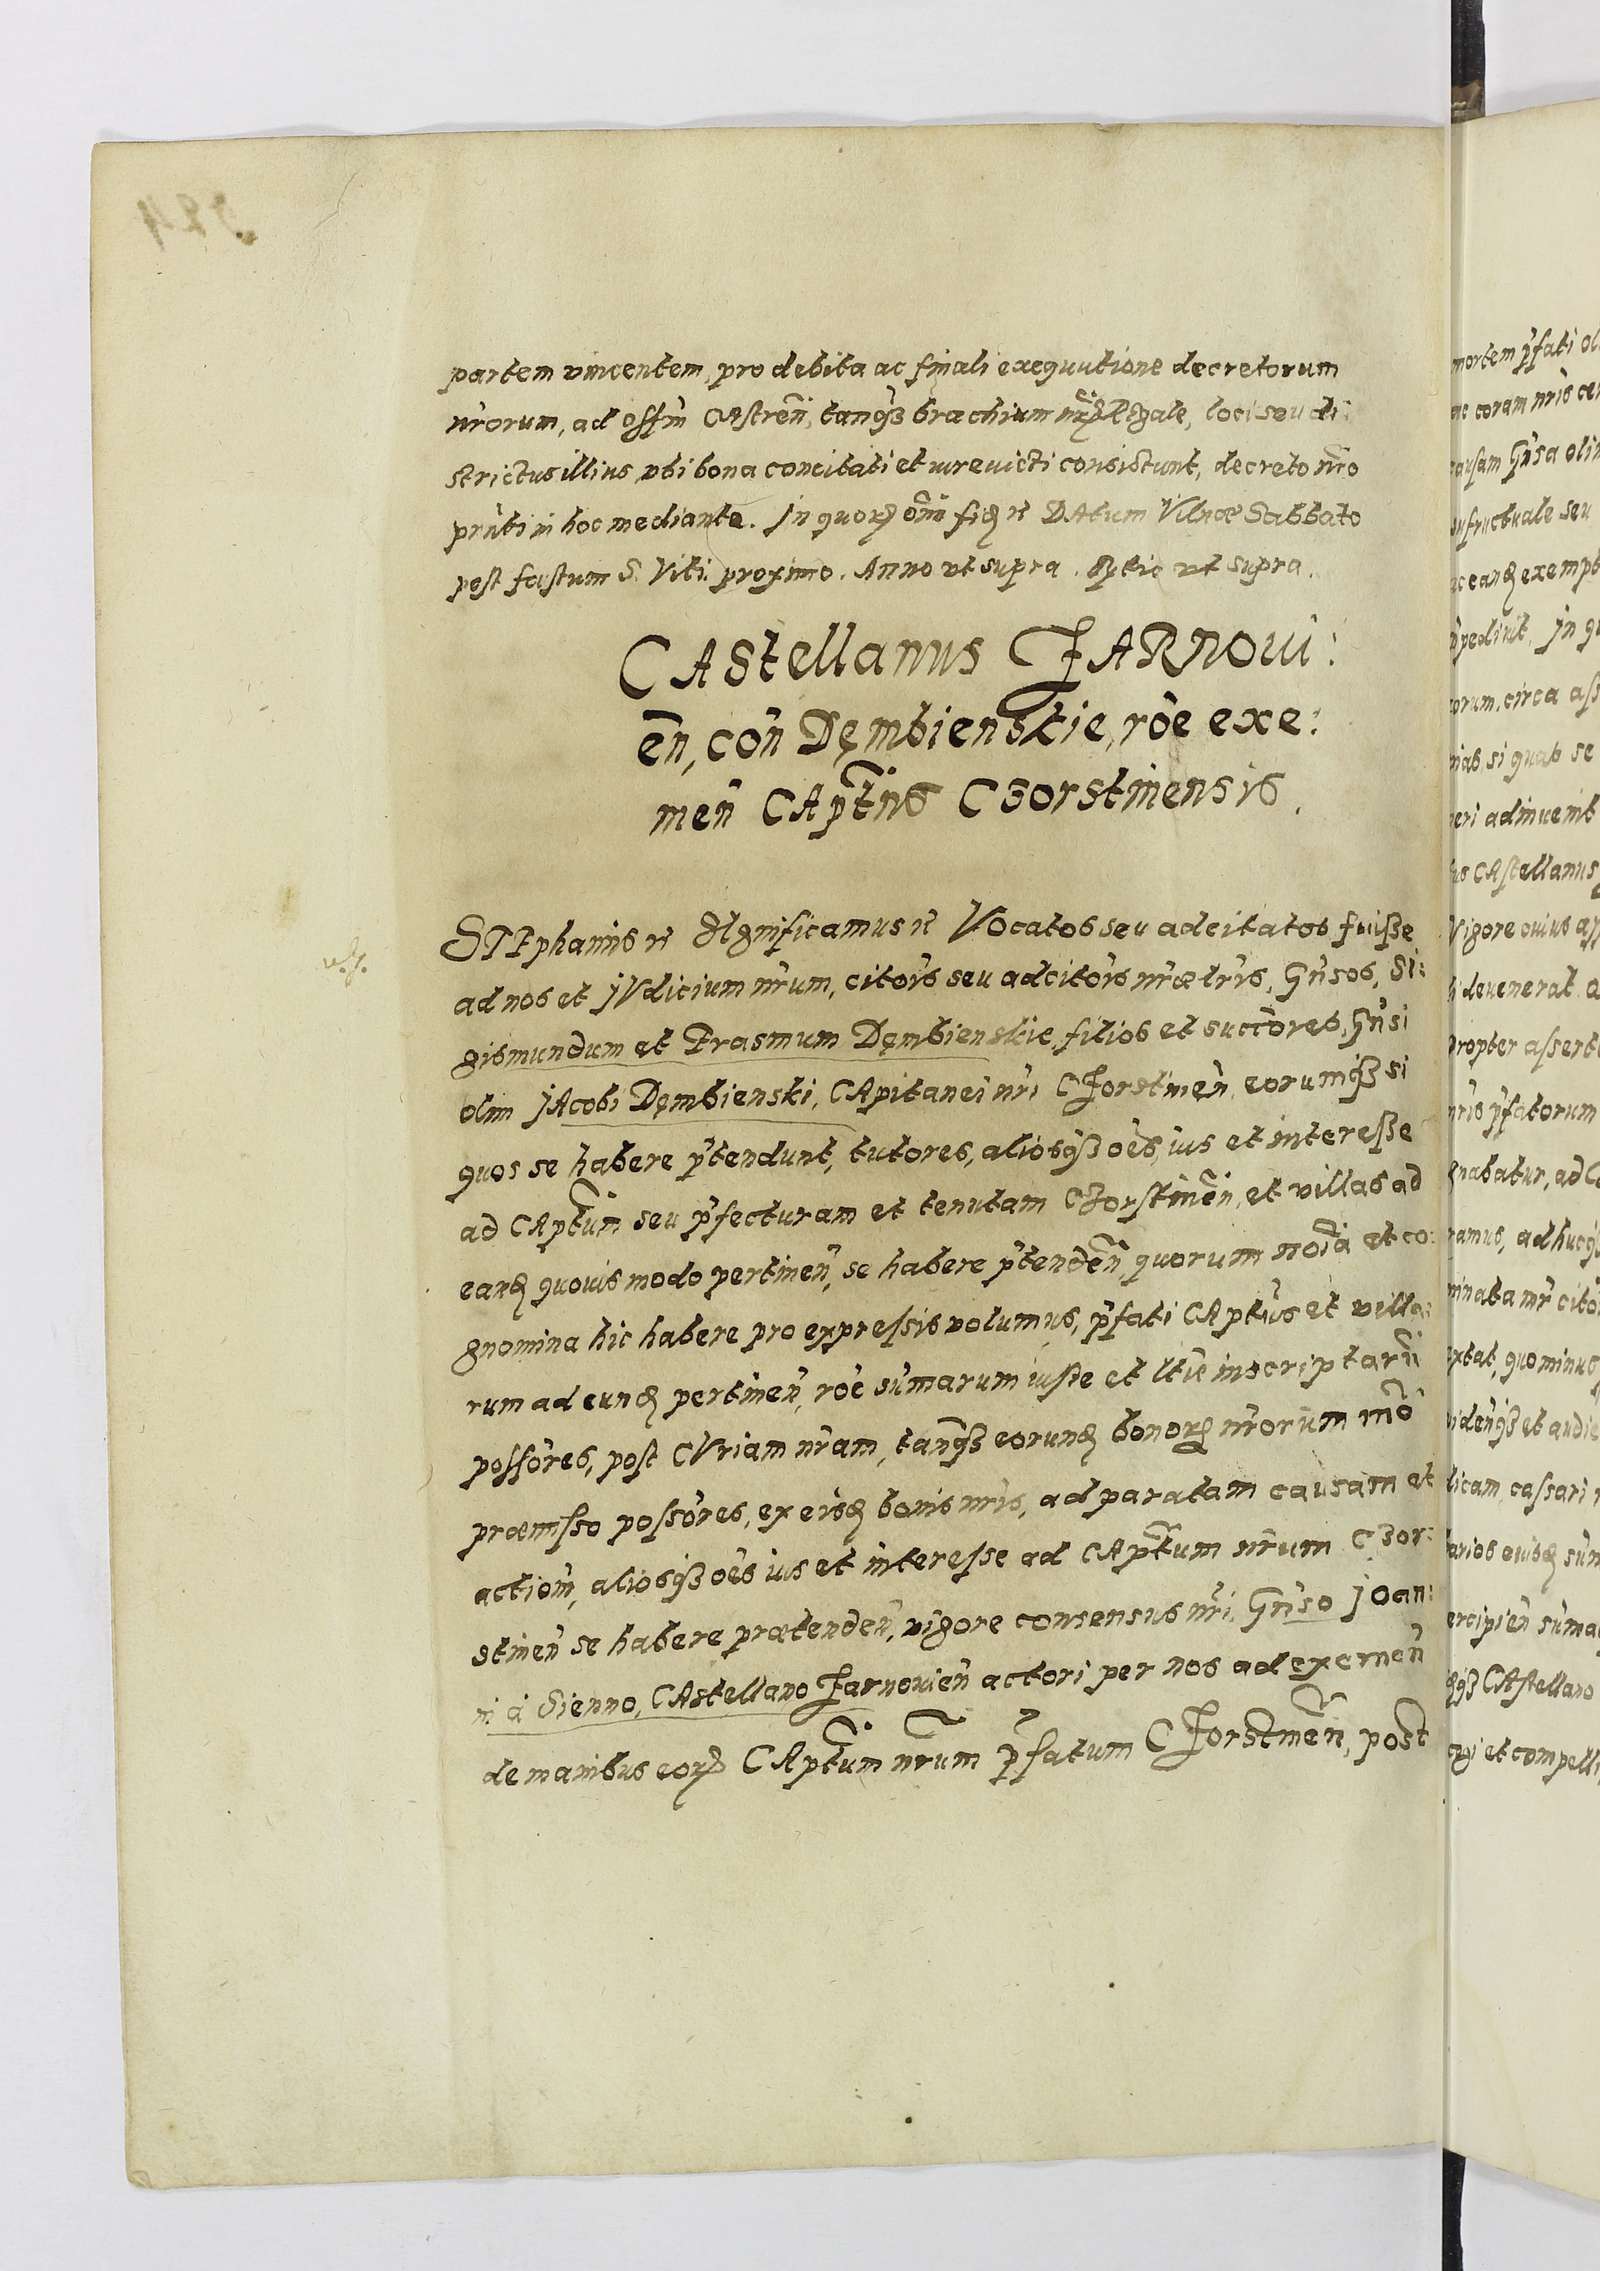 partem vincentem, pro debita ac finali exequutione decretorum
nr̃orum, ad offm̃ CAstreñ, tanqȝ brachium nr̃m Regale, loci seu di:
strictus illius vbi bona concitati et iurevicti consistunt, decreto nr̃o
prñti in hoc mediante. In quorꝝ om̃ fidꝫ ꝛc̃ DAtum Vilnæ Sabbato
post festum S. Viti. proximo. Anno vt supra. vt supra.
CAstellanus ŻARNOVI:
eñ, coñ Dęmbienskie, rõe exe:
meñ CAptñs Cʒorstinensis.
STEphanus ꝛc̃ SIgnificamus ꝛc̃ VOcatos seu adcitatos fuisse
ad nos et IVdicium nr̃um, citõis seu adcitõis nr̃æ lr̃is, Gñsos, Si:
gismundum et Erasmum Dęmbienskie, filios et succõres, Gñsi
olim IAcobi Dęmbienski, CApitanei nr̃i CZorstineñ, eorumqȝ si
quos se habere p̃tendunt, tutores, aliosqȝ oẽs, ius et interesse
ad CAptum̃ seu p̃fecturam et tenutam CZorstineñ, et villas ad
eandꝫ quouis modo pertineñ, se habere p̃tendeñ quorum noĩa et co:
gnomina hic habere pro expressis volumus, p̃fati CAptũs et villa:
rum ad eundꝫ pertineñ, rõe sũmarum iuste et ltĩe inscriptarũ
possõres, post CVriam nr̃am, tanqȝ eorundꝫ bonorꝝ nr̃orum mõ
præmisso possõres, ex eisdꝫ bonis nr̃is, ad paratam causam et
actiom̃, aliosqȝ oẽs ius et interesse ad CAptum̃ nr̃um Cʒor:
stineñ se habere prætendeñ, vigore consensus nr̃i, Gñso Joan:
ni à Sienno, CAstellano Żarnouieñ actori per nos ad exemeñ
de manibus eorꝝ CAptum̃ nr̃um p̃fatum CZorstineñ, post
mortem p̃fati ol
coram nr̃is
causam Gñsa olim
sufructuale seu
eandꝫ exempt
pedivit. In qu
orum, circa ass
si quas se
adinuenit
CAstellanus
Vigore cuius ass
deuenerat
propter asserto
nr̃is p̃fatorum
gnabatur, ad C
ramus, adhucqȝ
minata nr̃ citõ
extat, quominus
videñqȝ et audie
dicam, cassari
eiusdꝫ sũm
ercipieñ sũma
CAstellano
et compelli